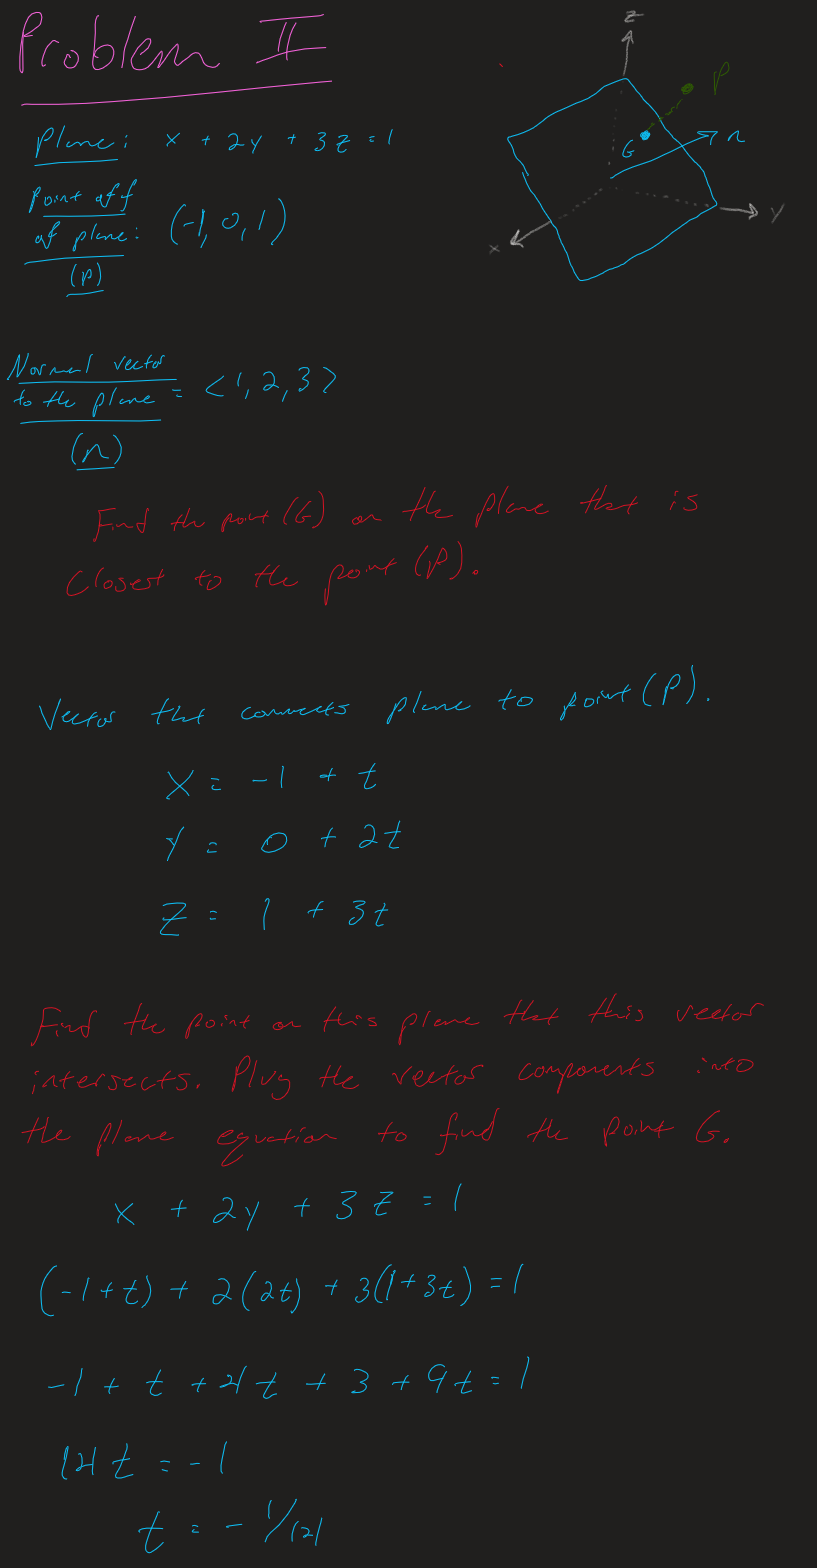 Problem II
Plane: x + 2y + 3z = 1
Point off
of plane: (-1, 0, 1)
(P)
z
P
G
n
y
x
Normal vector
to the plane = <1, 2, 3>
(n)
Find the point (G) on the plane that is
closest to the point (P).
Vector that connects plane to point (P).
X = -1 + t
Y = 0 + 2t
Z = 1 + 3t
Find the point on this plane that this vector
intersects. Plug the vector components into
the plane equation to find the point G.
x + 2y + 3z = 1
(-1+t) + 2(2t) + 3(1+3t) = 1
-1 + t + 4t + 3 + 9t = 1
14t = -1
t = -1/14